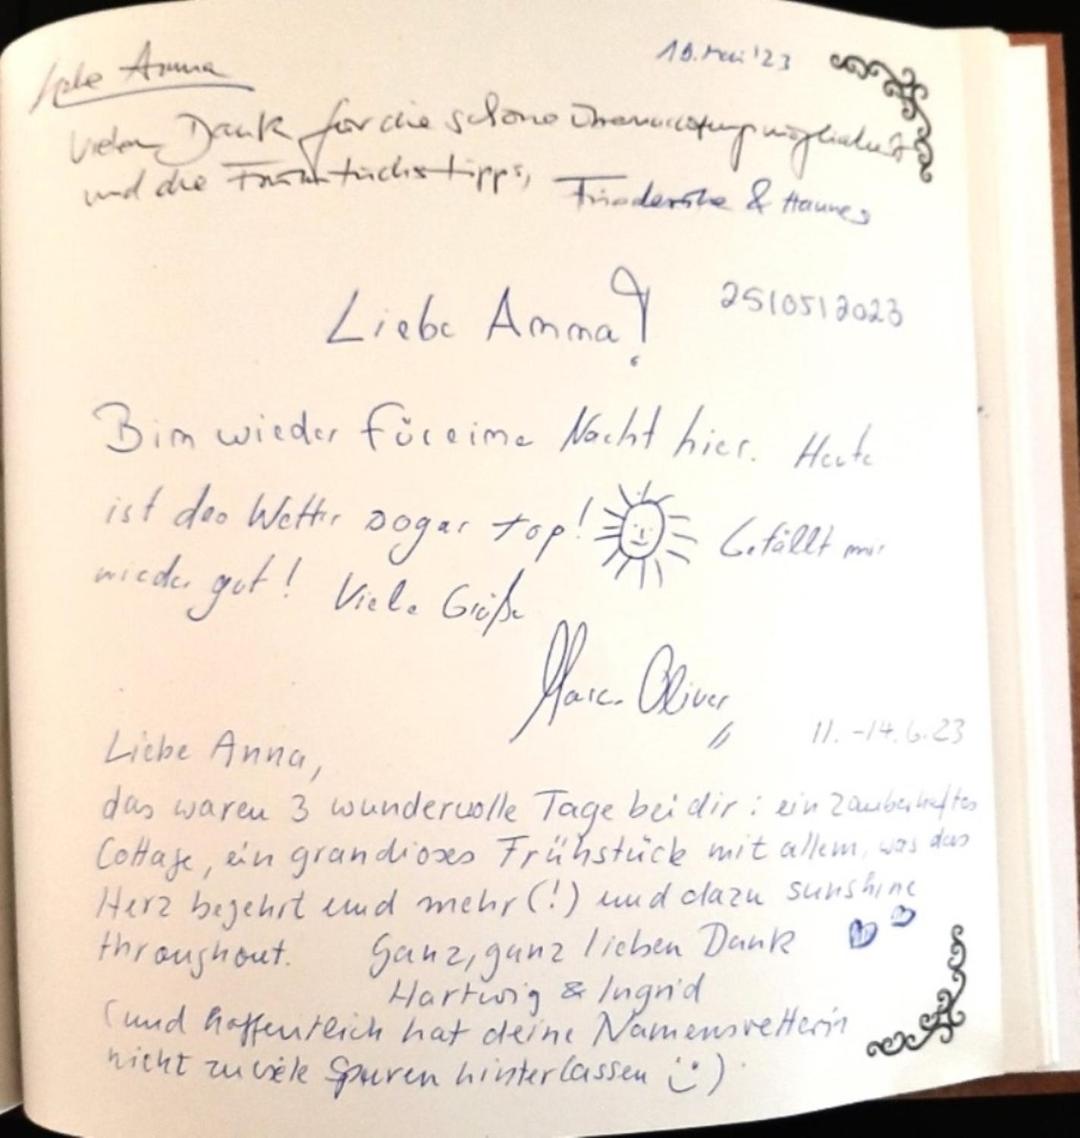 Liebe Anna
18. Mai '23
Vielen Dank für die schöne Übernachtungsmöglichkeit
und die Frühstückstipps, Friederike & Hannes
Liebe Anna!
25/05/2023
Bin wieder für eine Nacht hier. Heute
ist das Wetter sogar top! Gefällt mir
wieder gut! Viele Grüße
Marc Oliver
11. - 14.6.23
Liebe Anna,
das waren 3 wundervolle Tage bei dir: ein zauberhaftes
Cottage, ein grandioses Frühstück mit allem, was das
Herz begehrt und mehr (!) und dazu sunshine
throughout. Ganz, ganz lieben Dank
Hartwig & Ingrid
(und hoffentlich hat deine Namensvetterin
nicht zu viele Spuren hinterlassen :-)